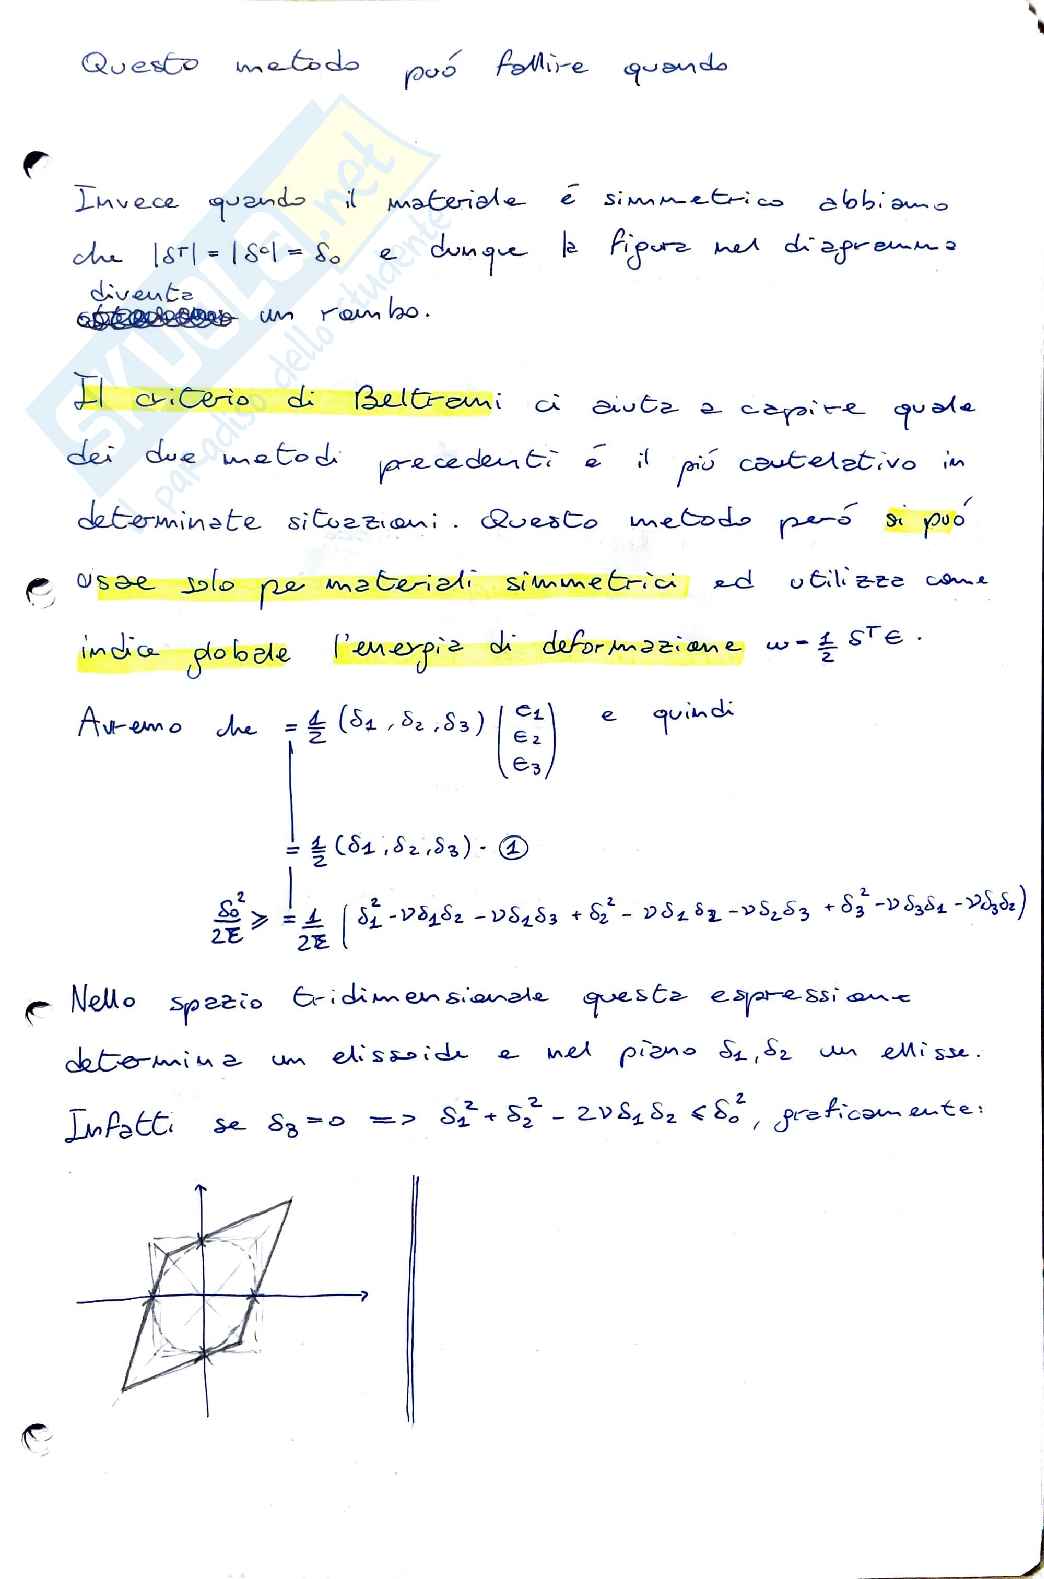 Questo metodo può fallire quando
Invece quando il materiale é simmetrico abbiamo
che |δᵀ| = |δᶜ| = δ₀ e dunque la figura nel diagramma
diventa
un rombo.
Il criterio di Beltrami ci aiuta a capire quale
dei due metodi precedenti é il piú cautelativo in
determinate situazioni. Questo metodo peró si puó
usae solo pe materiali simmetrici ed utilizza come
indice globale l'energia di deformazione w = 1/2 δᵀ ϵ.
Avremo che = 1/2 (δ1, δ2, δ3) (ϵ1 ϵ2 ϵ3) e quindi
= 1/2 (δ1, δ2, δ3) · ①
δ₀²/2E ≥ = 1/2E (δ1² - νδ1δ2 - νδ1δ3 + δ2² - νδ1δ2 - νδ2δ3 + δ3² - νδ3δ1 - νδ3δ2)
Nello spazio tridimensionale questa espressione
determina un elissoide e nel piano δ1, δ2 un ellisse.
Infatti se δ3 = 0 => δ1² + δ2² - 2νδ1δ2 ≤ δ₀², graficamente:
SKUOLA.net
il paradiso dello studente